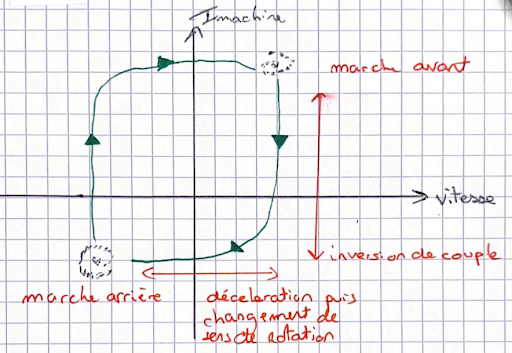 Imachine
marche avant
vitesse
inversion de couple
marche arrière
déceleration puis
changement de
sens de rotation